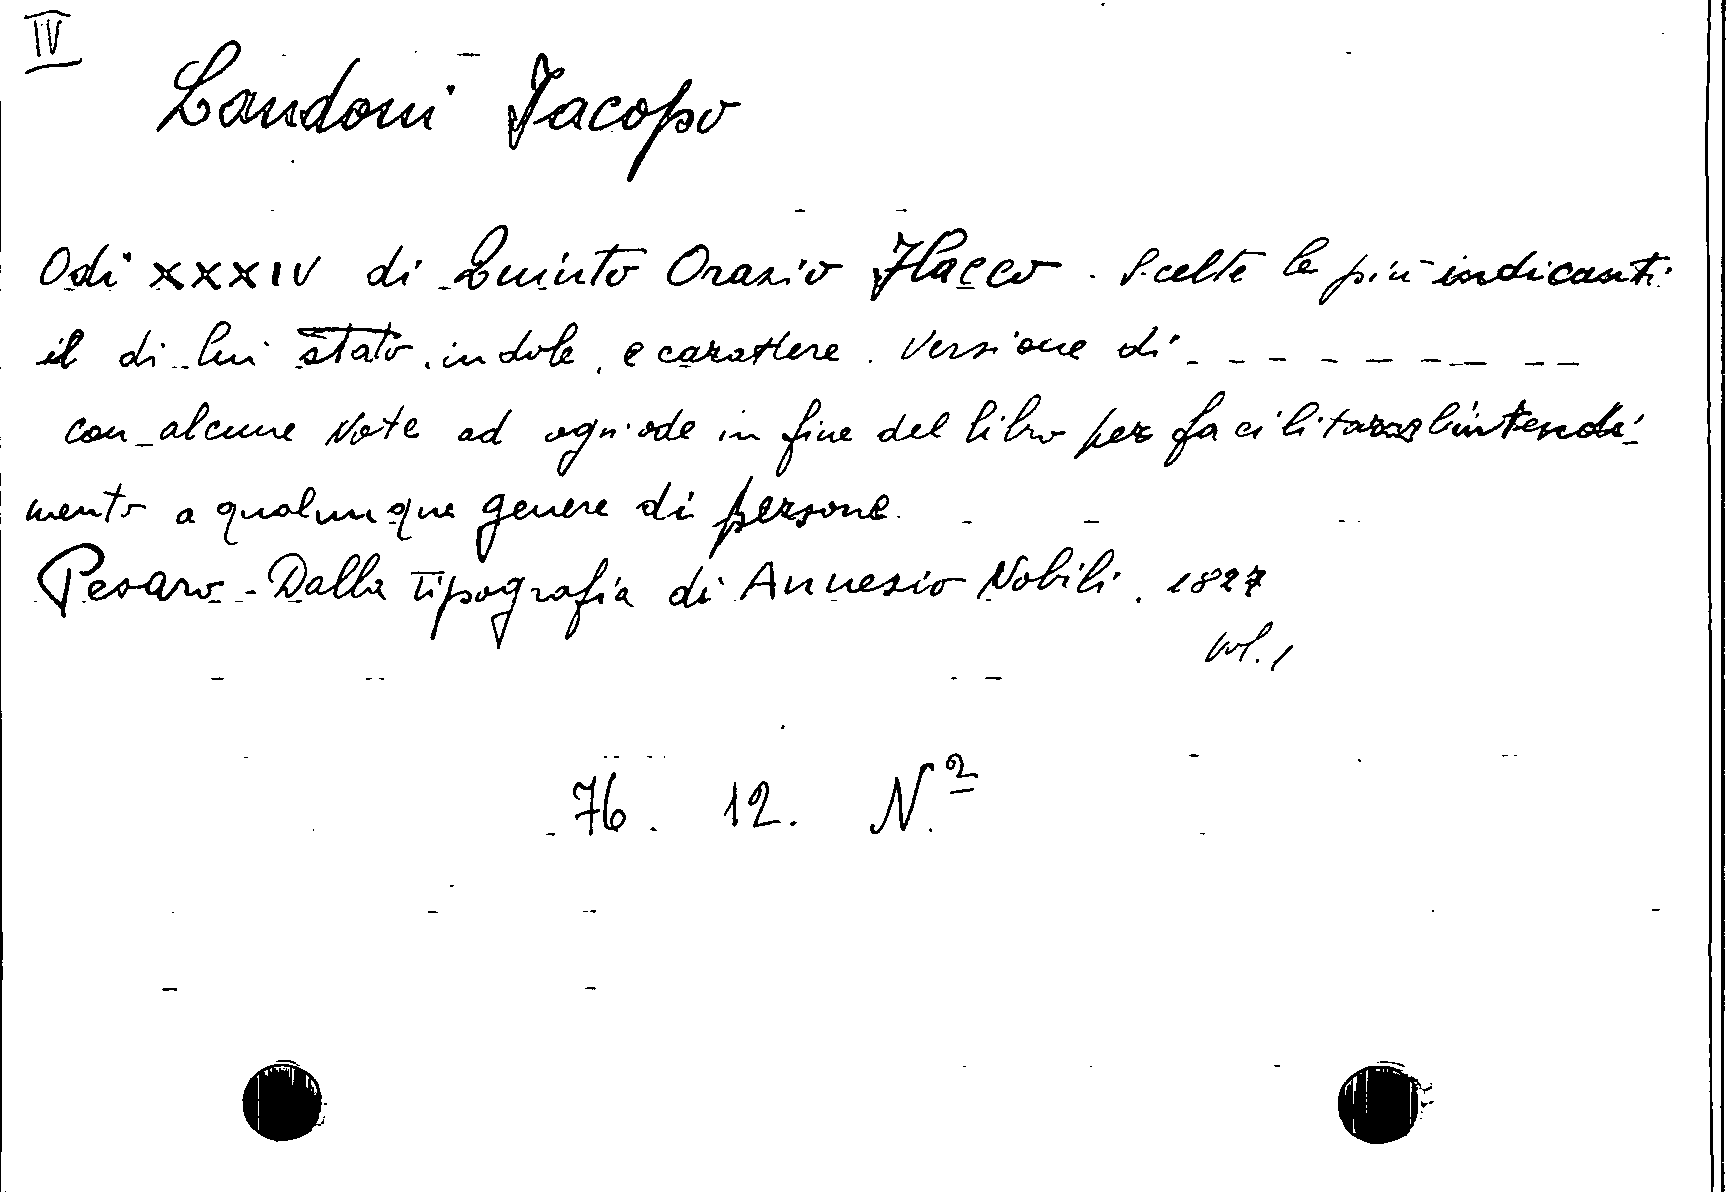 IV
Landoni Jacopo
Odi XXXIV di Quinto Orazio Flacco. Scelte le più indicanti
il di lui stato, indole, e carattere. Versione di _ _ _ _ _ _ _ _ _
con alcune Note ad ogni ode in fine del libro per facilitarne l'intendi-
mento a qualunque genere di persone.
Pesaro - Dalla Tipografia di Annesio Nobili. 1827
vol. 1
76. 12. N.2